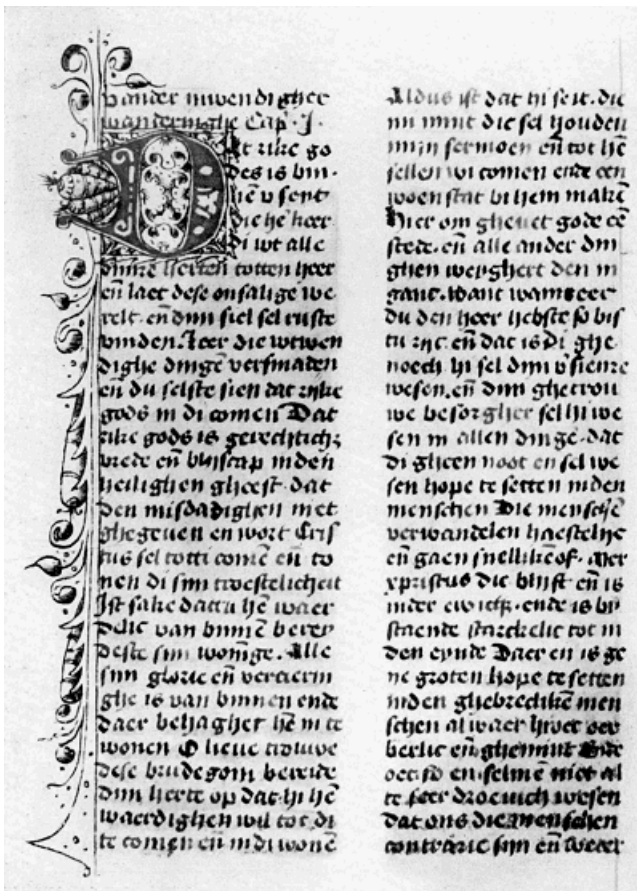 vander inwendigher
wanderinghe Cap. J.
Dt rike go
des is bin-
nē v sent
die hē keer
di wt alle
dinre herten totten heer
en̄ laet dese onsalige we
relt. en̄ dijn siel sel ruste
vinden. Leer die wtwen
dighe dingē versmaden
en̄ du selste sien dat rijke
gods in di comen Dat
rike gods is gerechtich;
vrede en̄ blijscap inden
heilighen gheest dat
den misdadighen niet
ghegeven en wort Cris
tus sel totti comē en̄ to
nen di sijn troestelicheit
Ist sake dattu hē waer
delic van binnē berey
deste sijn woninge. Alle
sijn glorie en̄ vercierin
ghe is van binnen ende
daer behaghet hē in te
wonen O lieve trouwe
dese brudegom bereide
dijn herte op dat hi hē
waerdighen wil tot di
te comen en̄ in di wonē
Aldus ist dat hi seit. die
mi mint die sel houden
mijn sermoen en̄ tot hē
sellen wi comen ende een
woenstat bi hem makē
Hier om ghevet gode eē
stede. en̄ alle ander din
ghen weyghert den in
ganc. Want wanneer
du den heer hebste so bis
tu rijc en̄ dat is di ghe
noech hi sel dijn v̄sienre
wesen. en̄ dijn ghetrou
we besorgher sel hi we
sen in allen dingē. dat
di gheen noot en sel we
sen hope te setten inden
menschen Die menschē
verwandelen haestelijc
en̄ gaen snellikē of. Mer
xpristus die blijft en̄ is
inder ewich. ende is bi
staende starckelic tot in
den eynde Daer en is ge
ne groten hope te setten
inden ghebrecliken men
schen al waer hi oec oer
berlic en̄ ghemint Ende
oec so en selmē niet al
te seer droevich wesen
dat ons die menschen
contrarie sijn en̄ weder